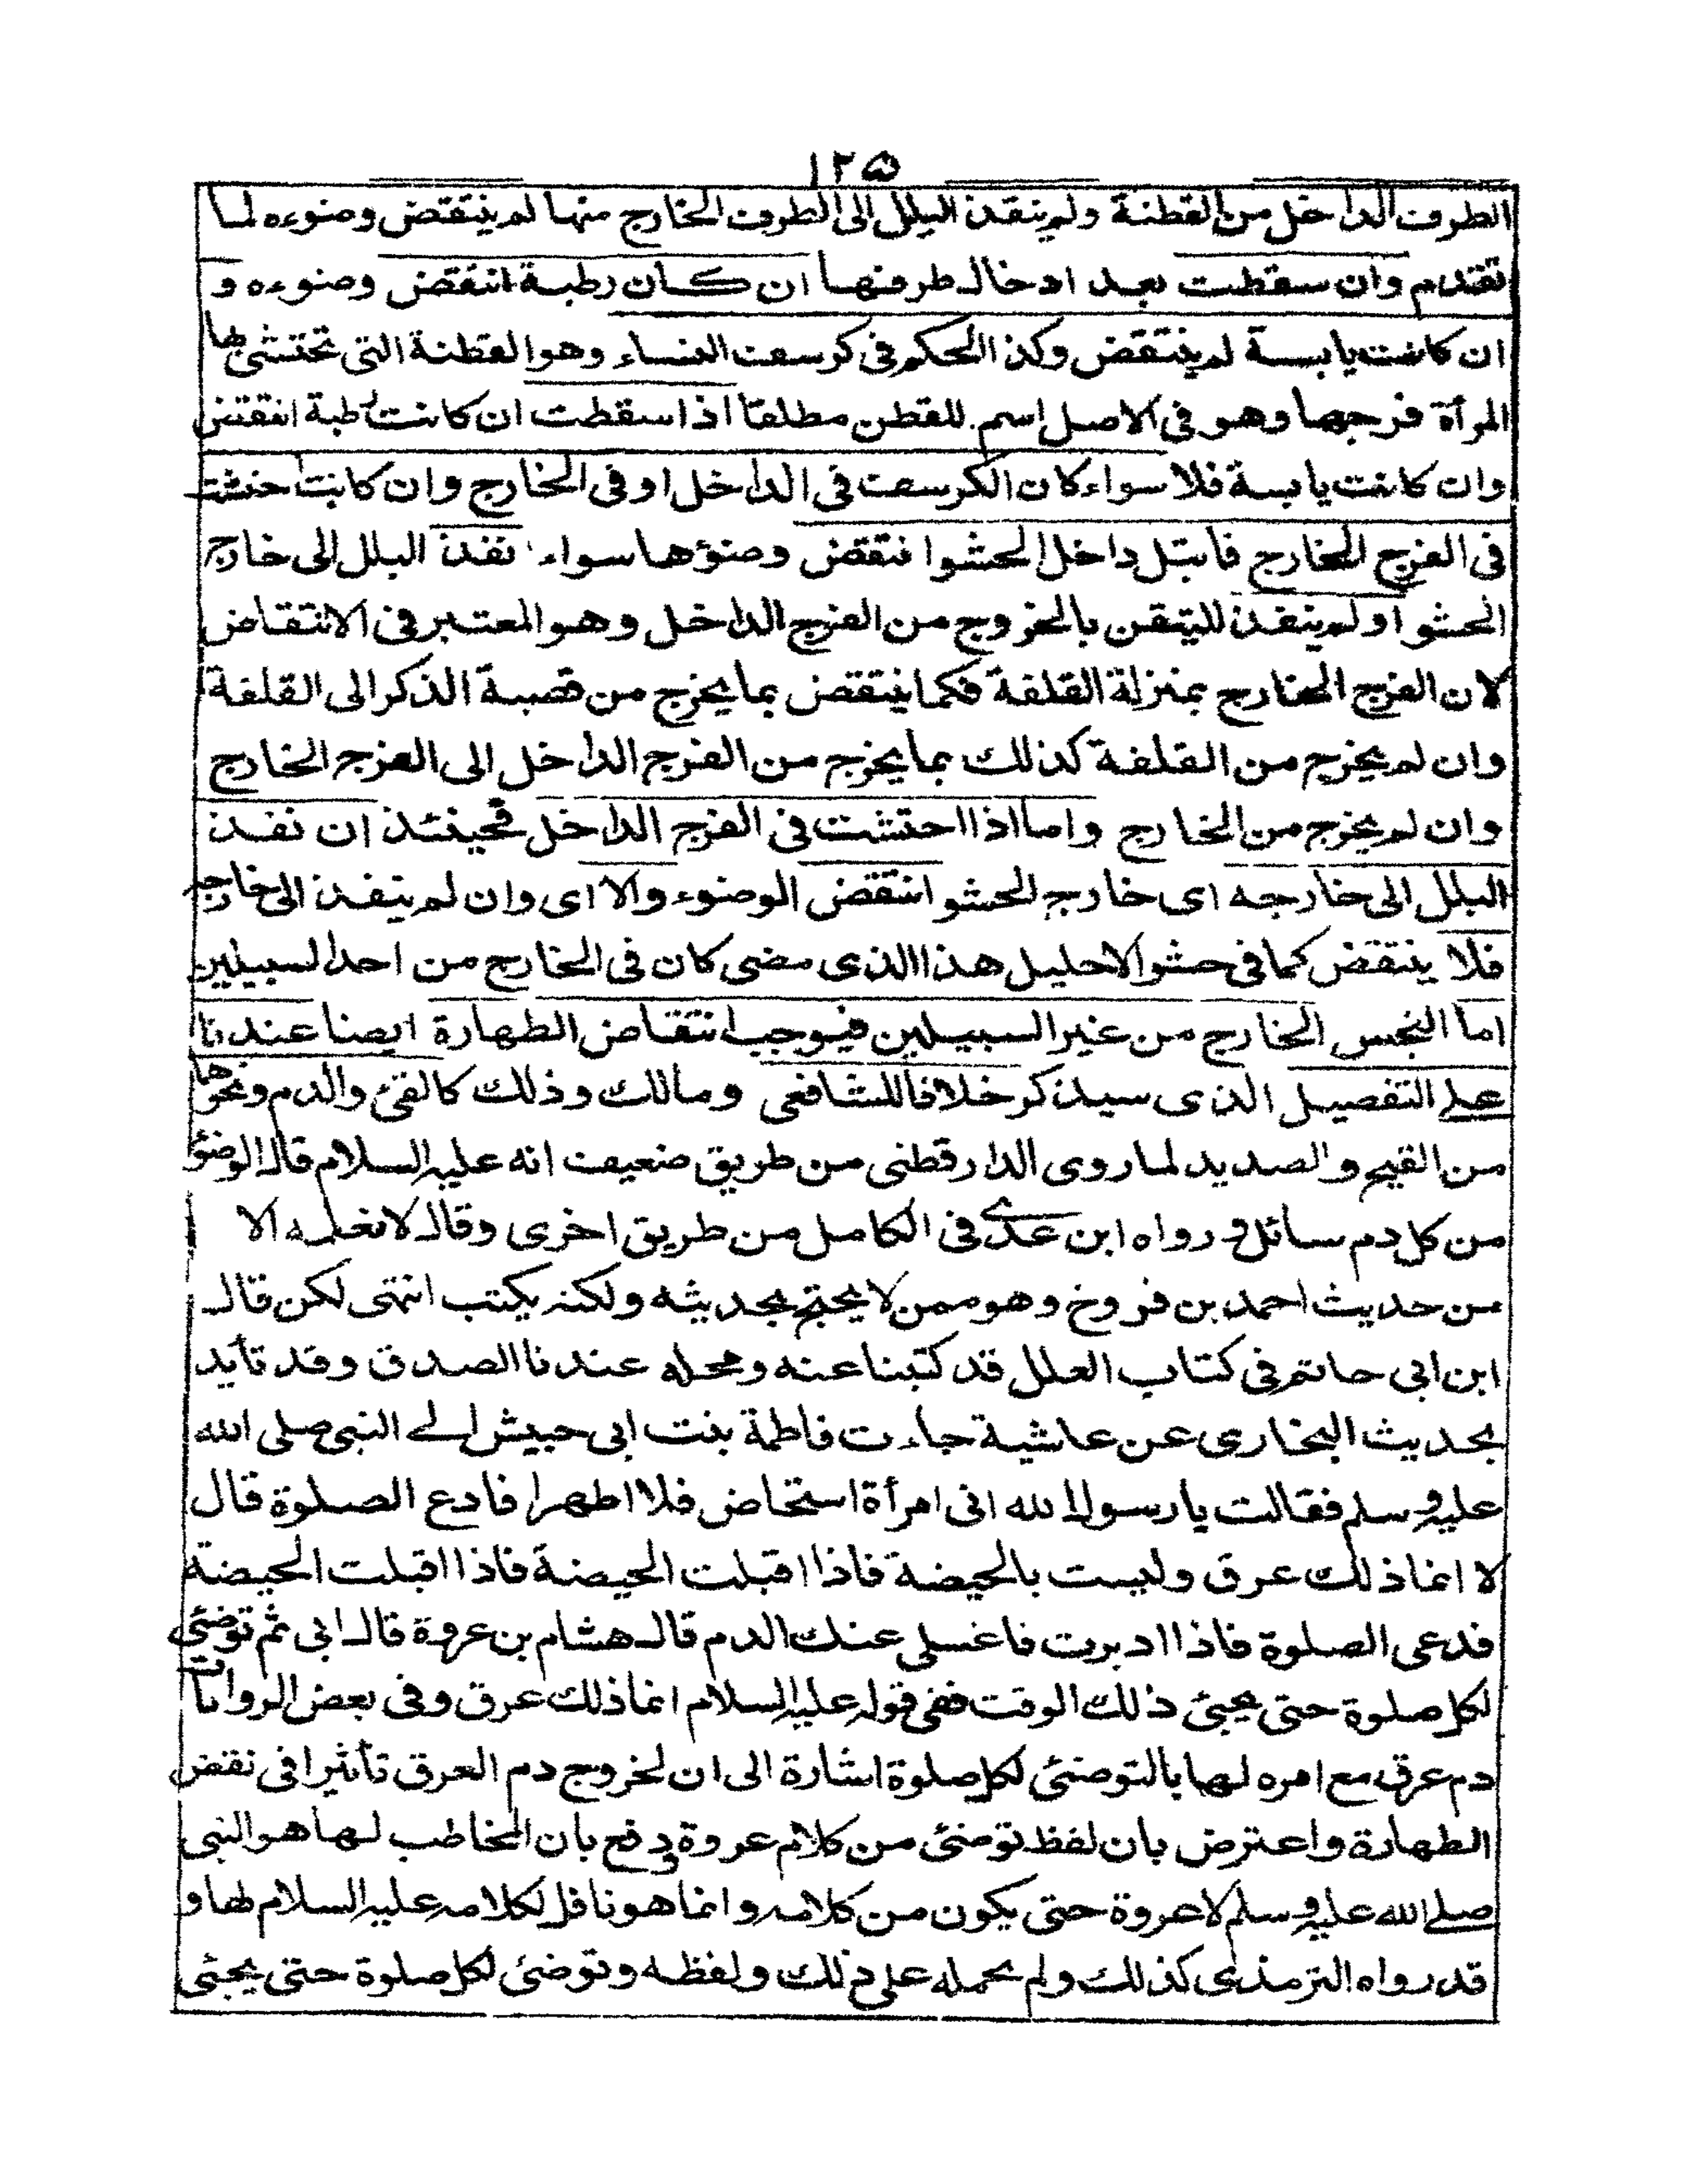 ١٢٥
الطرف الداخل من القطنة ولم ينفذ البلل الى الطرف الخارج منها لم ينتقض وضوءه لما
تقدم وان سقطت بعد ادخال طرفها ان كان رطبة انتقض وضوءه و
ان كانت يابسة لم ينتقض وكذا الحكم فى كرسف النساء وهو القطنة التى تحتشى بها
المرأة فرجها وهو فى الاصل اسم للقطن مطلقا اذا سقطت ان كانت رطبة انتقض
وان كانت يابسة فلا سواء كان الكرسف فى الداخل او فى الخارج وان كانت احتشت
فى الفرج الخارج فابتل داخل الحشو انتقض وضوؤها سواء نفذ البلل الى خارج
الحشو او لم ينفذ للتيقن بالخروج من الفرج الداخل وهو المعتبر فى الانتقاض
لان الفرج الخارج بمنزلة القلفة فكما ينتقض بما يخرج من قصبة الذكر الى القلفة
وان لم يخرج من القلفة كذلك بما يخرج من الفرج الداخل الى الفرج الخارج
وان لم يخرج من الخارج واما اذا احتشت فى الفرج الداخل فحينئذ ان نفذ
البلل الى خارجه اى خارج الحشو انتقض الوضوء والا اى وان لم ينفذ الى خارجه
فلا ينتقض كما فى حشو الاحليل هذا الذى مضى كان فى الخارج من احد السبيلين
اما النجس الخارج من غير السبيلين فيوجب انتقاض الطهارة ايضا عندنا
على التفصيل الذى سيذكر خلافا للشافعى ومالك وذلك كالقئ والدم ونحوها
من القيح والصديد لما روى الدار قطنى من طريق ضعيف انه عليه السلام قال الوضؤ
من كل دم سائل و رواه ابن عدے فى الكامل من طريق اخرى وقال لا نعلمه الا
من حديث احمد بن فروخ وهو ممن لا يحتج بحديثه ولكنه يكتب انتهى لكن قال
ابن ابى حاتم فى كتاب العلل قد كتبنا عنه ومحله عندنا الصدق وقد تأيد
بحديث البخارى عن عائشة جاءت فاطمة بنت ابى حبيش الے النبى صلى الله
عليه وسلم فقالت يا رسول الله انى امرأة استحاض فلا اطهر افادع الصلوة قال
لا انما ذلك عرق وليست بالحيضة فاذا اقبلت الحيضة فاذا اقبلت الحيضة
فدعى الصلوة فاذا ادبرت فاغسلى عنك الدم قال هشام بن عروة قال ابى ثم توضئى
لكل صلوة حتى يجئ ذلك الوقت ففى قوله عليه السلام انما ذلك عرق وفى بعض الروايات
دم عرق مع امره لها بالتوضئ لكل صلوة اشارة الى ان لخروج دم العرق تأثيرا فى نقض
الطهارة واعترض بان لفظ توضئ من كلام عروة ودفع بان المخاطب لها هو النبى
صلے الله عليه وسلم لا عروة حتى يكون من كلامه وانما هو ناقل لكلامه عليه السلام لها و
قد رواه الترمذى كذلك ولم يحمله على ذلك ولفظه وتوضئ لكل صلوة حتى يجئى